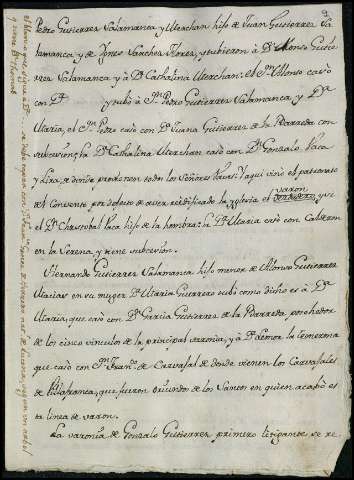 Pedro Gutierres Salamanca y Merchan hijo de Juan Gutierres Sa
lamanca y de Ynes Sanches Flores, y tubieron à Dn Alonso Gutie
rres Salamanca y à Da Cathalina Merchan: el Cn Alonso casò
con Da y tubò à Cn Pedro Gutierres Salamanca, y Da
Maria, el Cn Pedro casò con Da Juana Gutierres de la Barreda con
subcesion; la Da Cathalina Merchan casò con Dn Gonzalo Vaca
y Lira, de donde proceden todos los Señores Vacas. Y aqui vinò el patronato
del Convento por defecto de aver reedificado la yglesia el varon
y si
el Dn Christobal Vaca hijo de la hembra: la Da Maria casò con Calderon
en la Serena, y tiene subcesion.
Hernando Gutierres Salamanca hijo menor de Alonso Gutierres
Macias en su muger Da Maria Guerrero tubò como dicho es à Da
Maria, que casò con Dn Garcia Gutierres de la Barreda, poseedor
de los cinco vinculos de la principal varonia, y à Da Leonor la
que casò con Cn Juan de Carvajal de donde vienen los Carvajales
de Villafranca, que fueron oriundos de los Santos en quien acabò es
ta linea de varon.
La varonia de Gonzalo Gutierres primero litigante se re